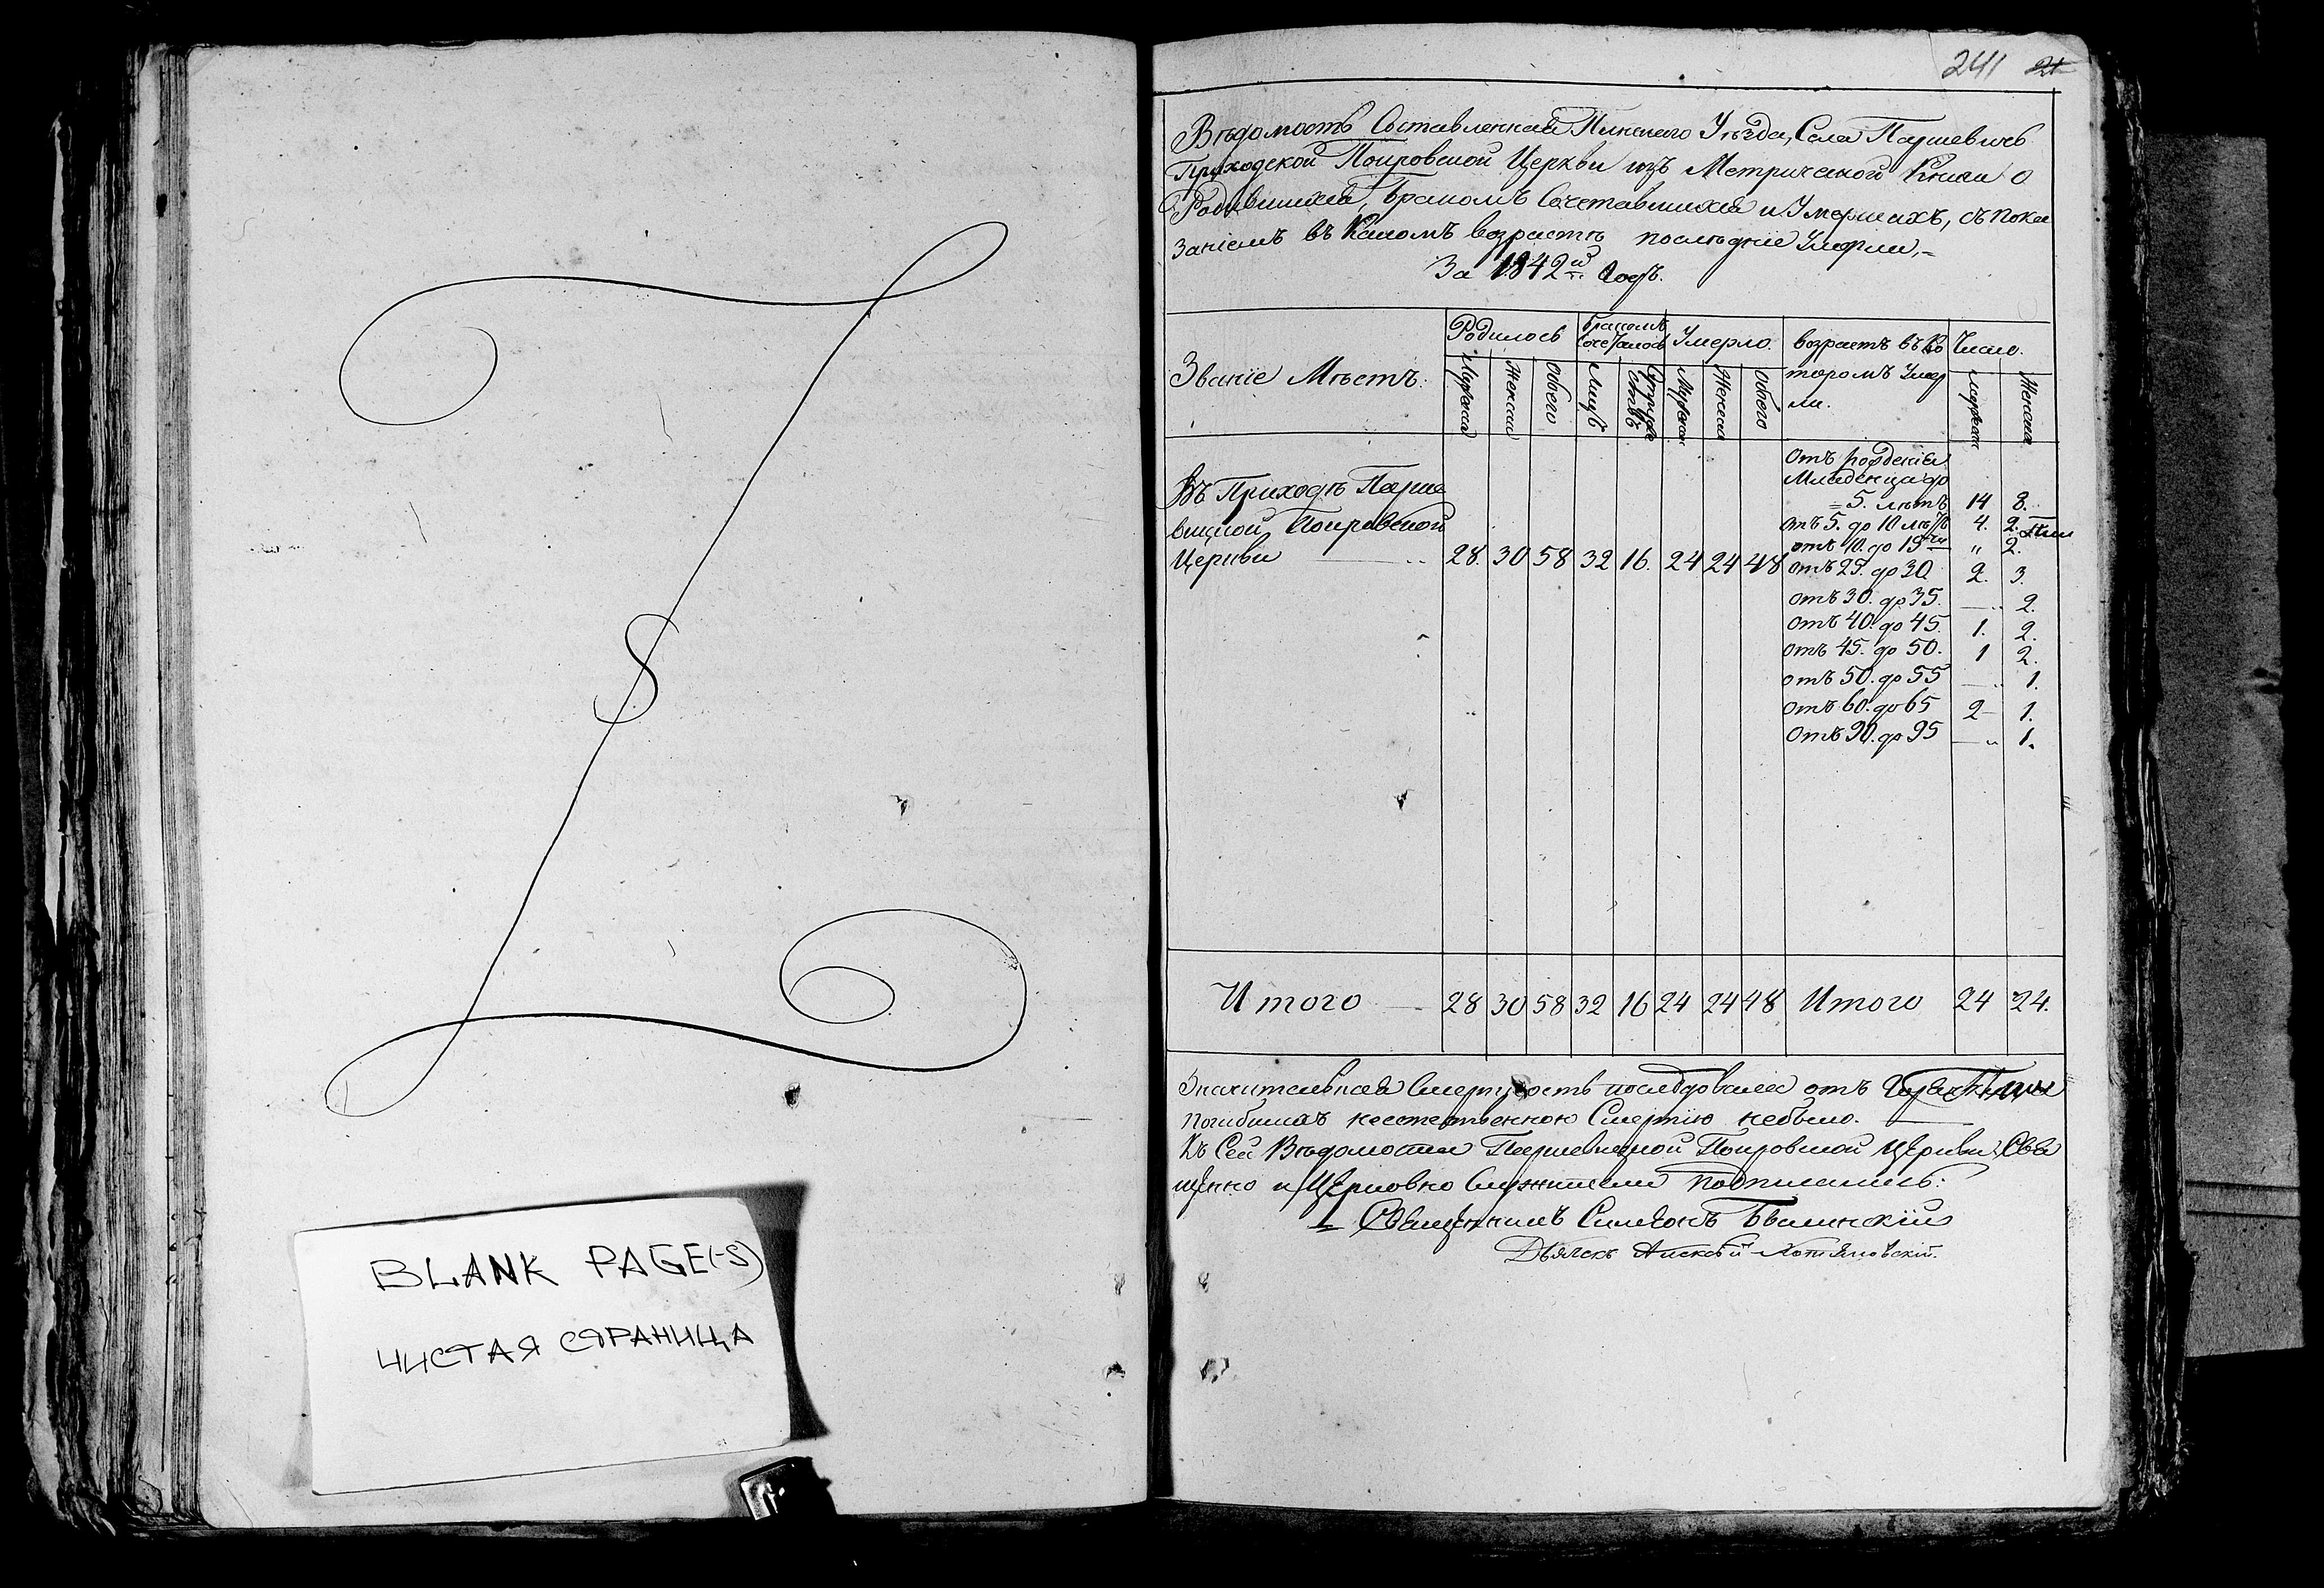 BLANK PAGE(-S)
ЧИСТАЯ СТРАНИЦА
241 21
Вѣдомость Составленная Пинскаго Уѣзда, Села Паршевичь
Приходской Покровской Церкви изъ Метрической Книги о
Родившихся, бракомъ Сочетавшихся и Умершихъ, съ пока
заніемъ въ Какомъ возрастѣ послѣдніе Умерли,=
За 1842й Годъ.
Званіе Мѣстъ.
Родилось
бракомъ Сочеталось
Умерло.
возрастъ въ Ко
торомъ Умер
ли.
Число.
Мужеска
Женска
Обоего
Лицъ
Мужеска
Женска
Обоего
Мужеска
Женска
Въ Приходѣ Парше
вицкой Покровской
Церкви 28. 30 58 32 16. 24 24 48
Отъ рожденія
Младенца до
=5. лѣтъ 14 8.
отъ 5. до 10 лѣтъ 4. 2.
отъ 10. до 15ти „ 2.
отъ 25. до 30 2. 3.
отъ 30. до 35. — „ 2.
отъ 40. до 45. 1. 2.
отъ 45. до 50. 1 2.
отъ 50. до 55 — „ 1.
отъ 60. до 65 2 — 1.
Отъ 90. до 95 — „ 1.
Итого 28 30 58 32 16 24 24 48 Итого 24 24.
Значительная Смертность последовала отъ
погибшихъ неестественною Смертію небыло.
Къ Сей Вѣдомости Паршевицкой Покровской Церкви Свя
щенно и Церковно Служители Подписались:
Священникъ Симеонъ
Дьячекъ Алексѣй